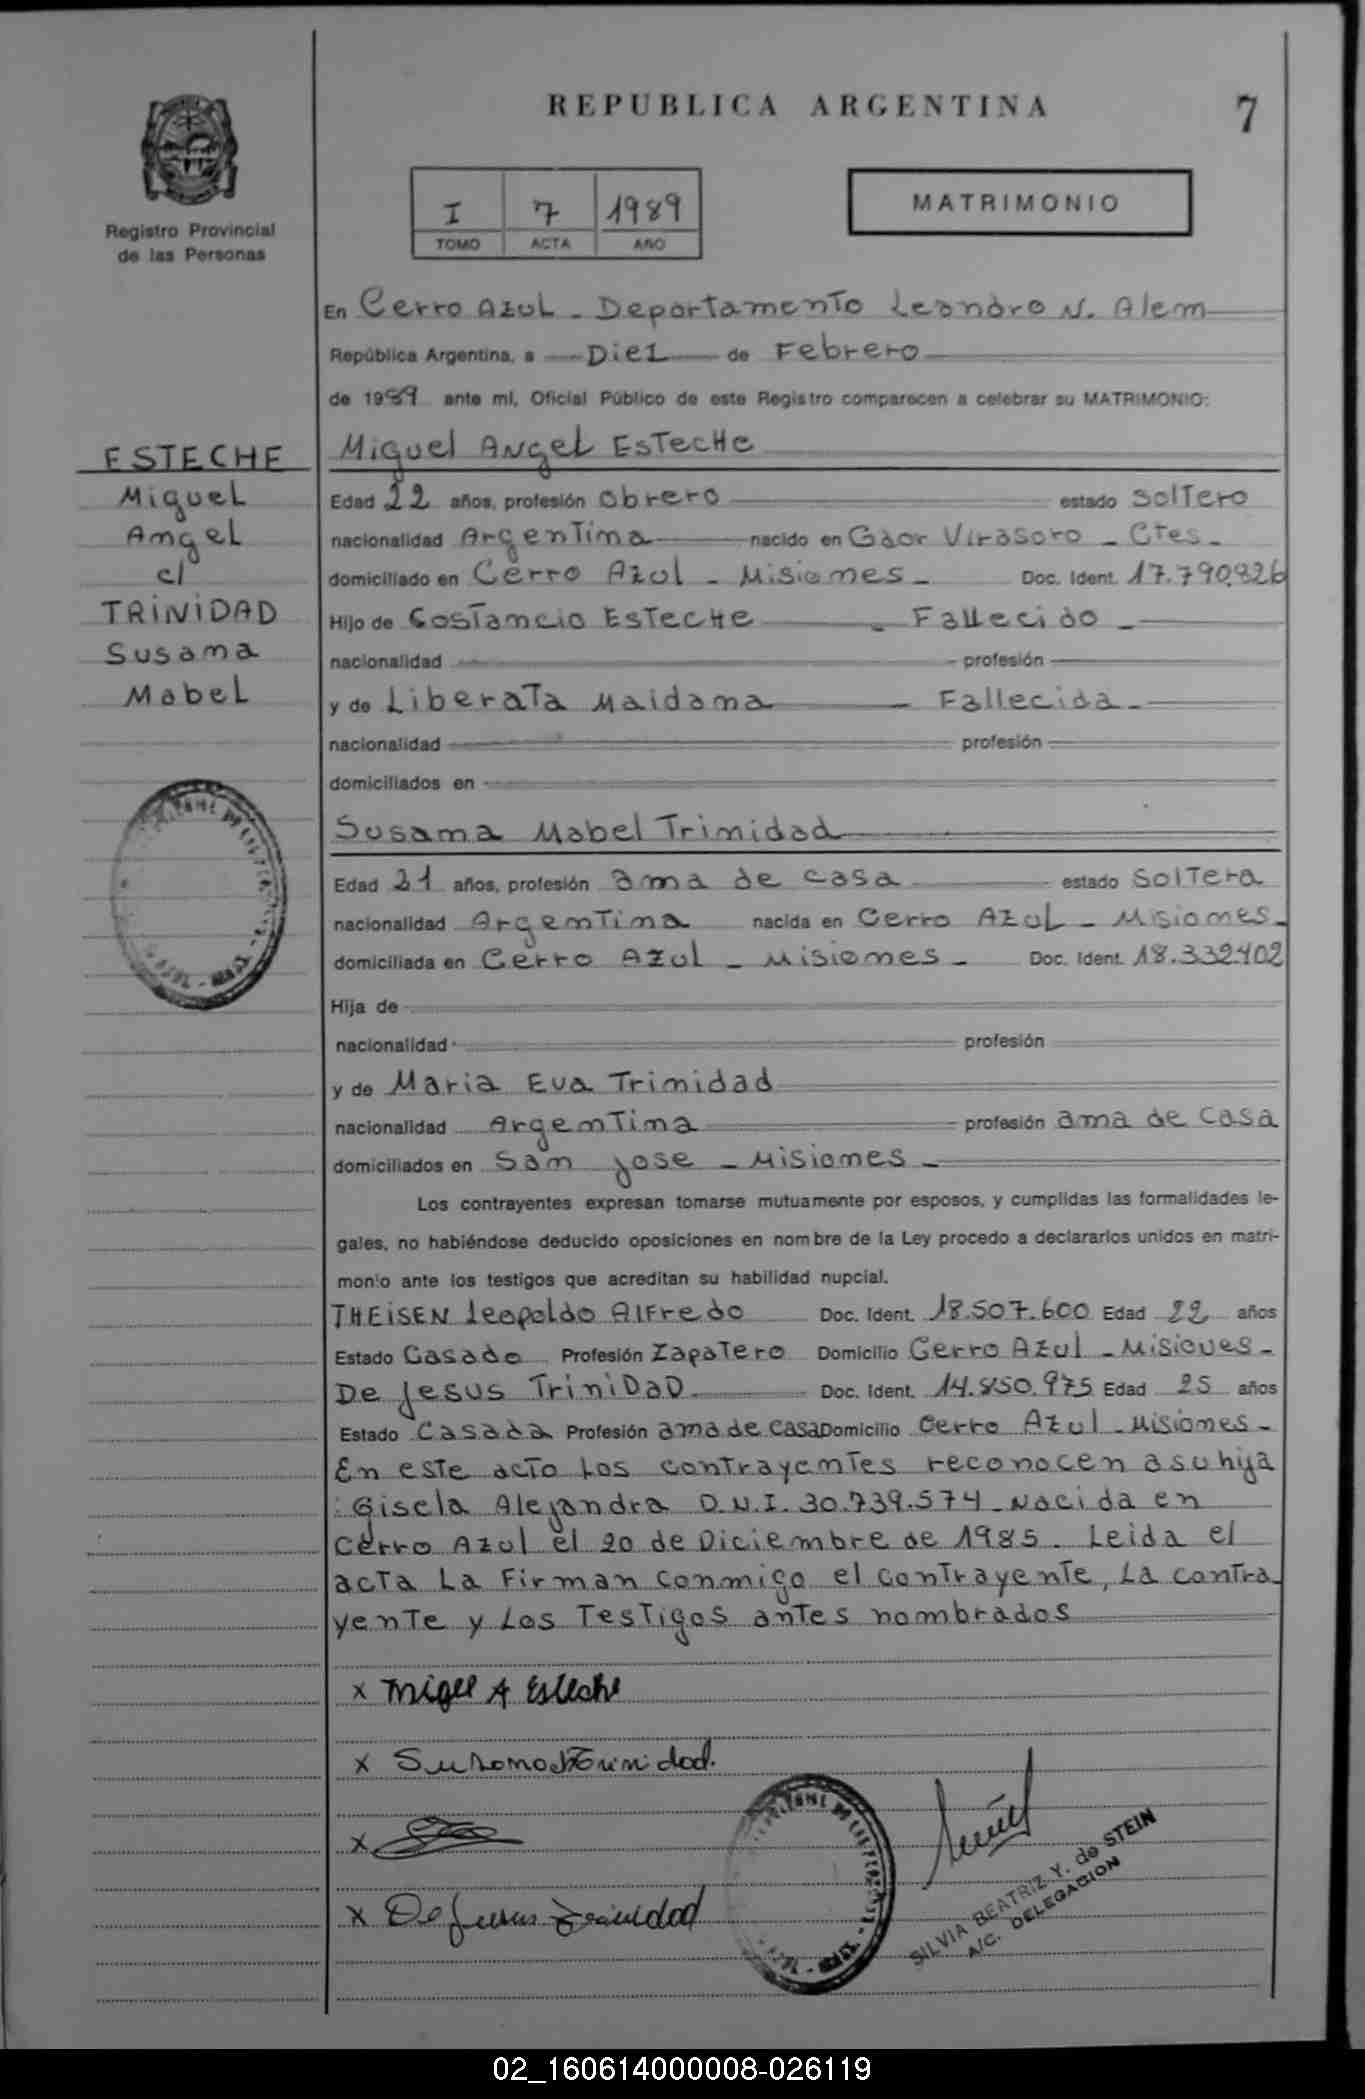 REPUBLICA ARGENTINA
7
Registro Provincial
de las Personas
I 7 1989
TOMO ACTA AÑO
MATRIMONIO
En Cerro Azul - Departamento Leandro N. Alem
República Argentina, a Diez de Febrero
de 1989 ante mí, Oficial Público de este Registro comparecen a celebrar su MATRIMONIO:
ESTECHE
Miguel
Angel
c/
TRINIDAD
Susana
Mabel
Miguel Angel Esteche
Edad 22 años, profesión obrero estado soltero
nacionalidad Argentina nacido en Gdor Virasoro - Ctes -
domiciliado en Cerro Azul - Misiones - Doc. Ident. 17.790.826
Hijo de Costancio Esteche - Fallecido -
nacionalidad profesión
y de Liberata Maidana - Fallecida -
nacionalidad profesión
domiciliados en
Susana Mabel Trinidad
Edad 21 años, profesión ama de casa estado soltera
nacionalidad Argentina nacida en Cerro Azul - Misiones -
domiciliada en Cerro Azul - Misiones - Doc. Ident. 18.332.402
Hija de
nacionalidad profesión
y de Maria Eva Trinidad
nacionalidad Argentina profesión ama de casa
domiciliados en San Jose - Misiones -
Los contrayentes expresan tomarse mutuamente por esposos, y cumplidas las formalidades le-
gales, no habiéndose deducido oposiciones en nombre de la Ley procedo a declararlos unidos en matri-
monio ante los testigos que acreditan su habilidad nupcial.
THEISEN Leopoldo Alfredo Doc. Ident. 18.507.600 Edad 22 años
Estado Casado Profesión Zapatero Domicilio Cerro Azul - Misiones -
De Jesus Trinidad Doc. Ident. 14.850.975 Edad 25 años
Estado Casada Profesión ama de casa Domicilio Cerro Azul - Misiones -
En este acto los contrayentes reconocen a su hija
: Gisela Alejandra D.N.I. 30.739.574 - Nacida en
Cerro Azul el 20 de Diciembre de 1985. Leida el
acta La Firman conmigo el contrayente, La contra-
yente y Los Testigos antes nombrados
x Migel A Esteche
x Susana Trinidad.
x
x De Jesus Trinidad
SILVIA BEATRIZ Y. de STEIN
A/C. DELEGACION
02_160614000008-026119